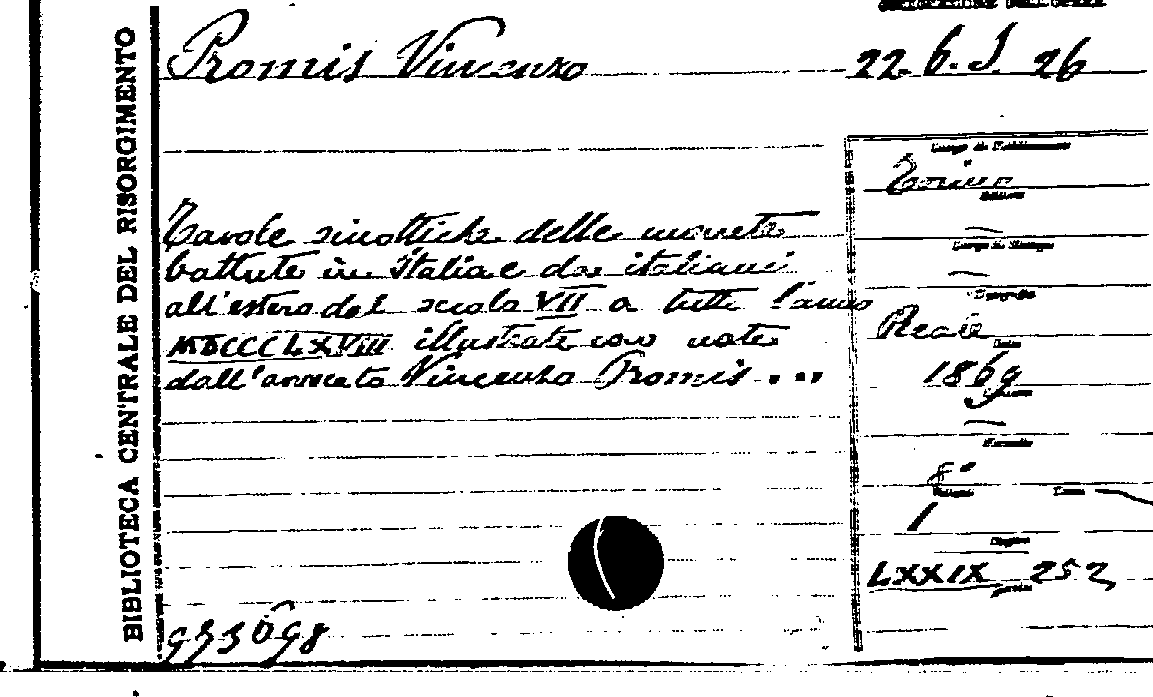 BIBLIOTECA CENTRALE DEL RISORGIMENTO
Promis Vincenzo
22. 6. I. 26
Luogo di Pubblicazione
Torino
Tavole sinottiche delle monete
battute in Italia e da italiani
all'estero dal secolo VII a tutto l'anno
MDCCCLXVIII illustrate con note
dall'avvocato Vincenzo Promis ...
Luogo di Stampa
Tipografia
Reale
1869
Formato
8°
Volumi
1
Pagine
LXXIX 252